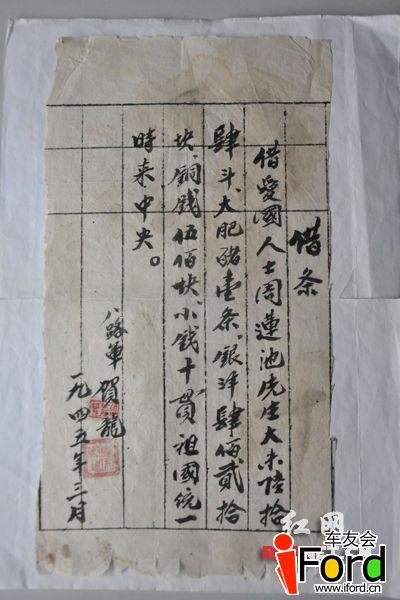 借条
借愛國人士周蓮池先生大米陸拾
肆斗、大肥豬壹条、銀洋肆佰貳拾
块、銅钱伍佰块、小钱十貫、祖國統一
時来中央。
八路軍 賀龍
一九四五年三月
红网
车友会
iFord
www.iford.cn